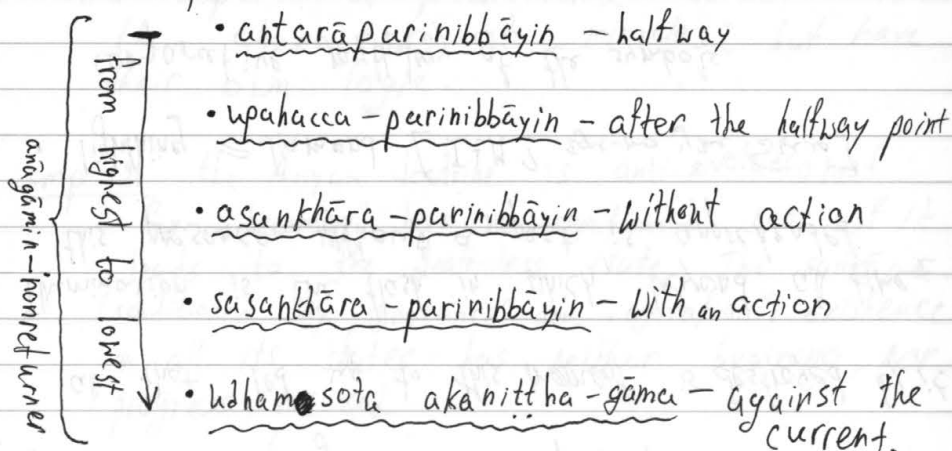 anāgāmin – nonreturner
from highest to lowest
• antarāparinibbāyin – halfway
• upahacca – parinibbāyin – after the halfway point
• asankhāra – parinibbāyin – without action
• sasankhāra parinibbāyin – with an action
• udhamsota akaniṭṭha – gāma – against the
current.